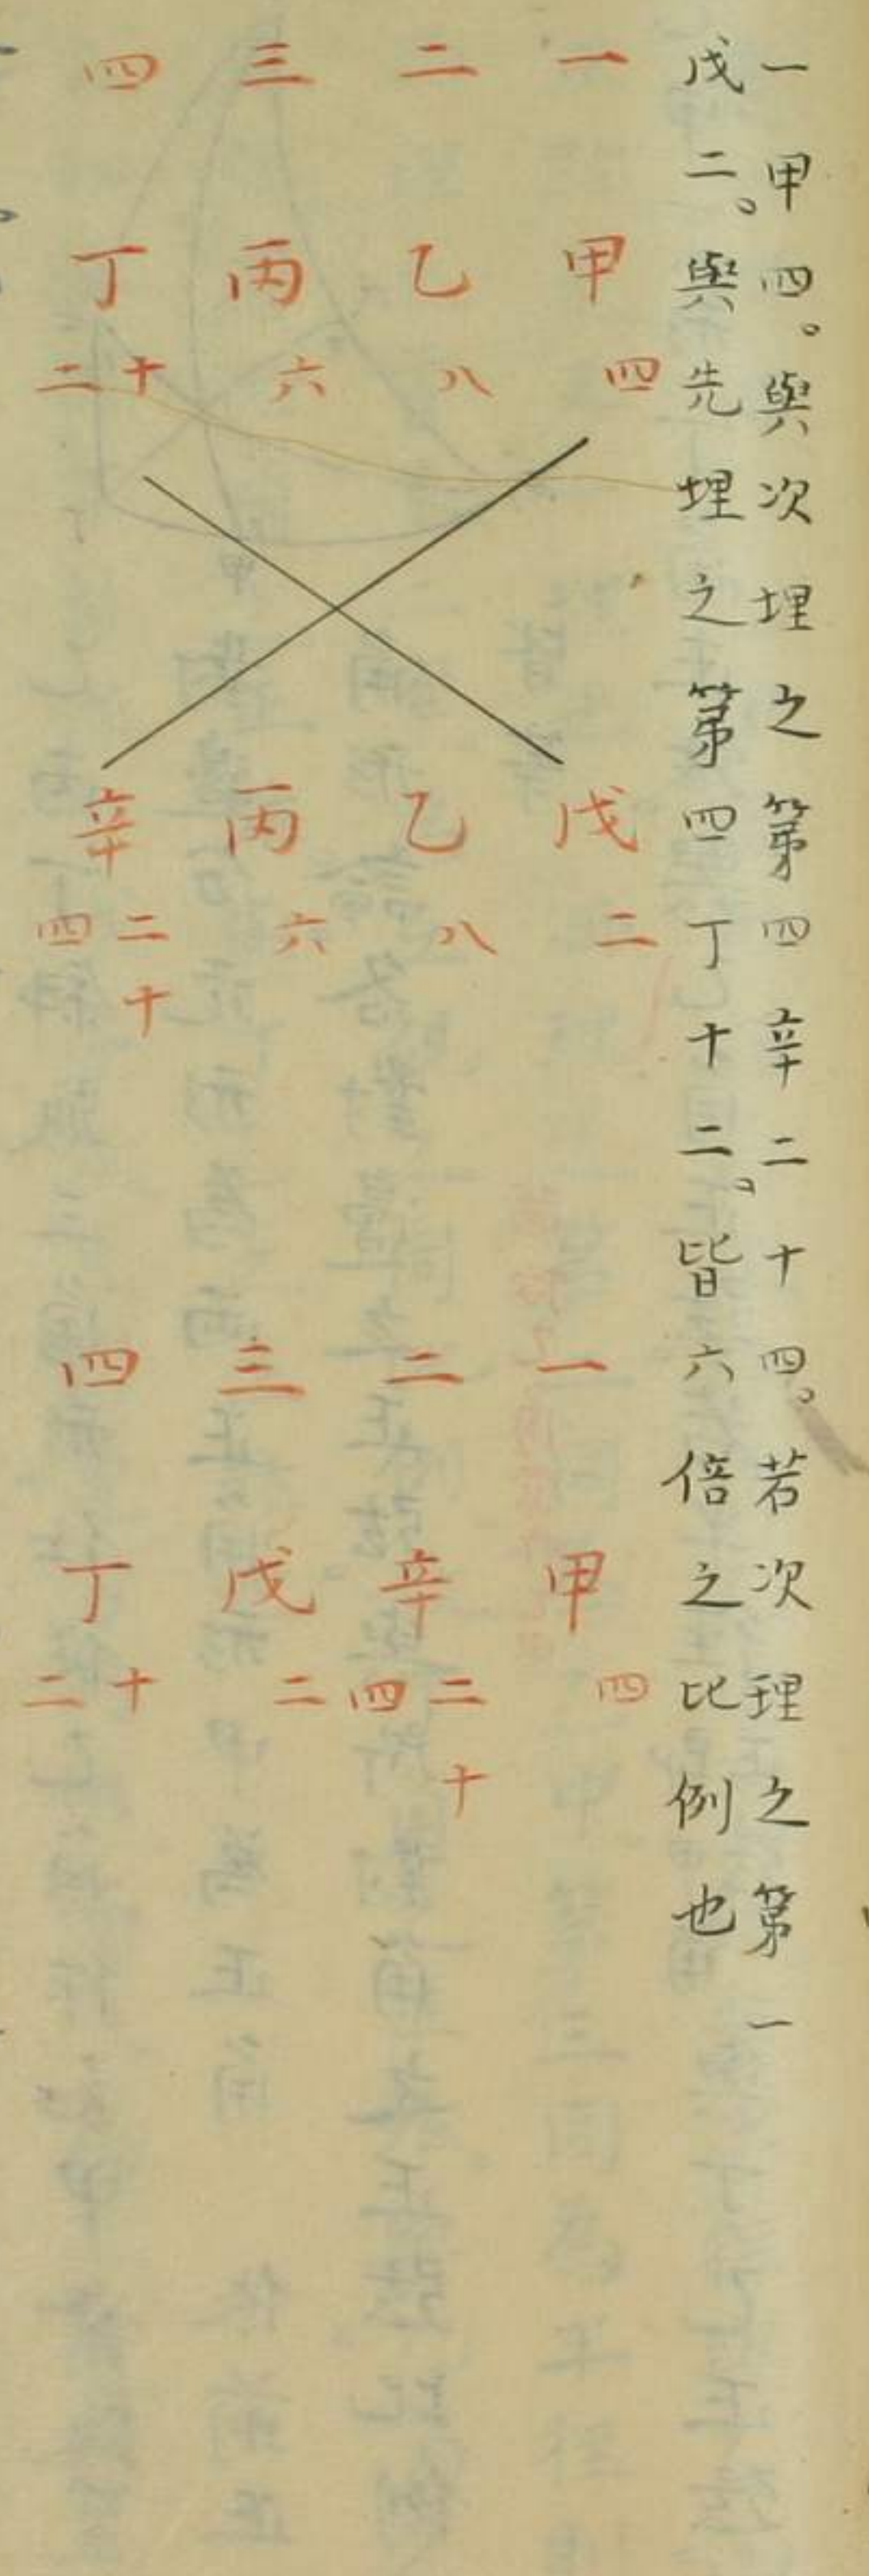 一甲四。與次埋之第四辛二十四。若次理之第一
戊二。與先埋之第四丁十二。皆六倍之比例也
一 甲 四
二 乙 八
三 丙 六
四 丁 十二
戊 二
乙 八
丙 六
辛 二十四
一 甲 四
二 辛 二十四
三 戊 二
四 丁 十二